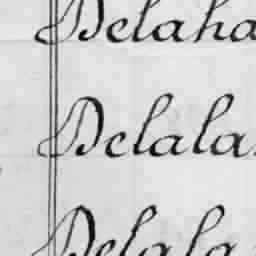 Delaha
Delala
Delala